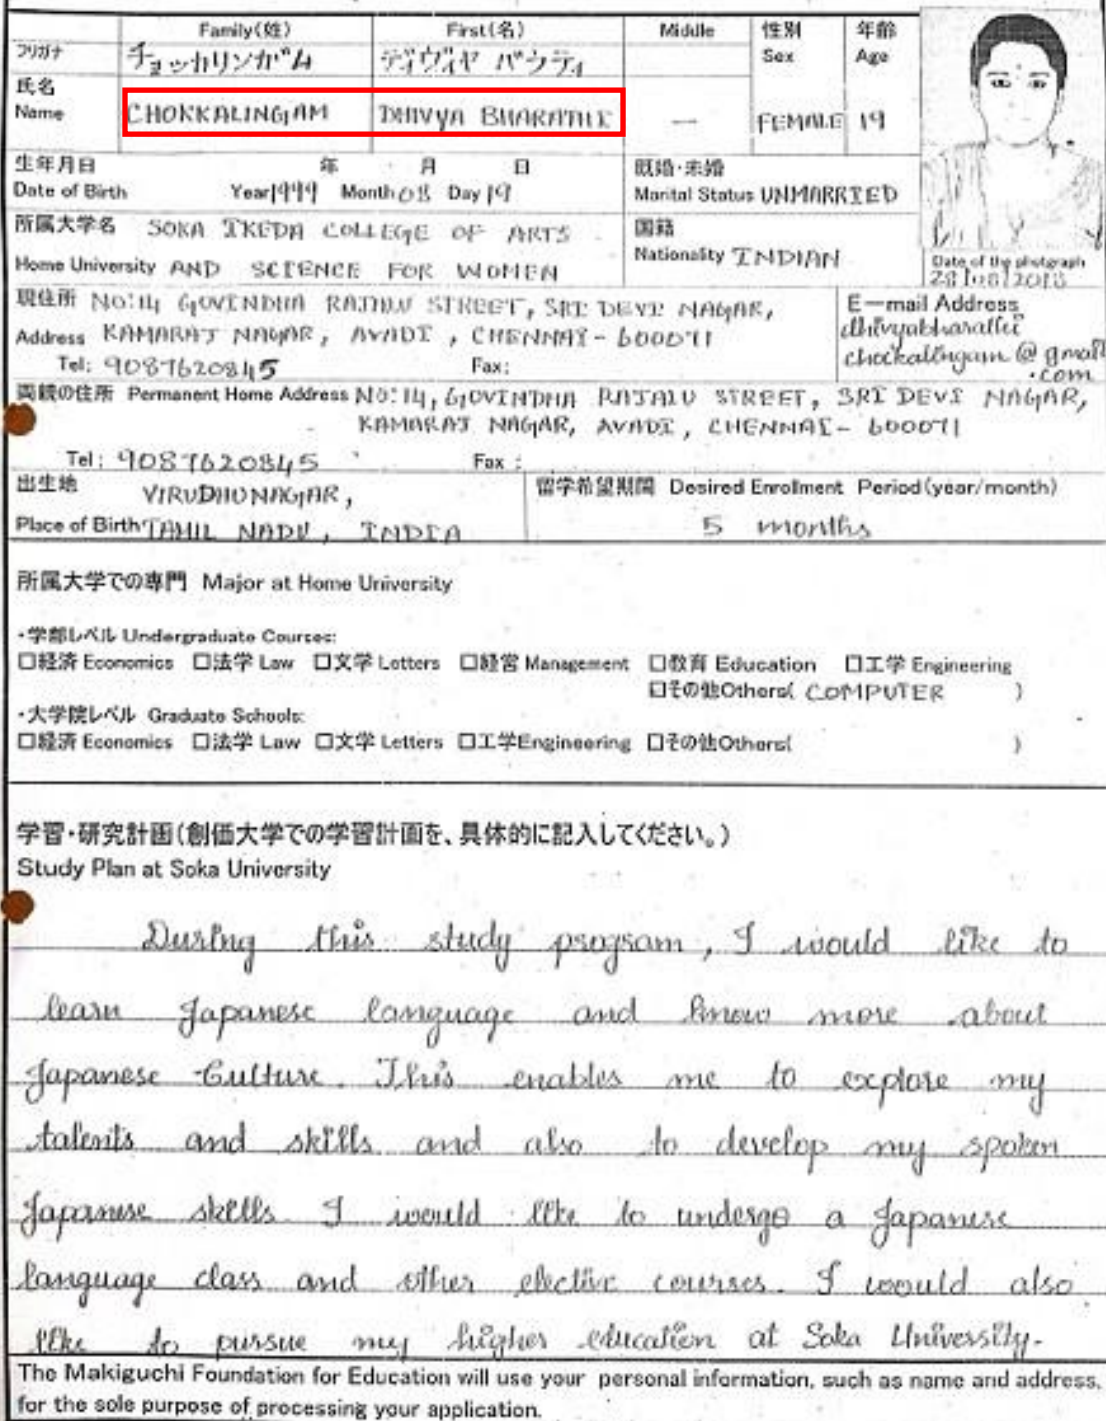 Family(姓) First(名) Middle 性別 年齢
フリガナ チョッカリンガム ディヴィヤ バラティ Sex Age
氏名
Name CHOKKALINGAM DHIVYA BHARATHI — FEMALE 19
生年月日 年 月 日 既婚・未婚
Date of Birth Year 1999 Month 08 Day 19 Marital Status UNMARRIED
所属大学名 SOKA IKEDA COLLEGE OF ARTS 国籍
Home University AND SCIENCE FOR WOMEN Nationality INDIAN
Date of the photograph
現住所 No:14 GOVINDHA RAJALU STREET, SRI DEVI NAGAR, E-mail Address
Address KAMARAJ NAGAR, AVADI, CHENNAI - 600071 dhivyabharathi
Tel: 9087620845 Fax: chockalingam@gmail
.com
両親の住所 Permanent Home Address No:14, GOVINDHA RAJALU STREET, SRI DEVI NAGAR,
KAMARAJ NAGAR, AVADI, CHENNAI - 600071
Tel: 9087620845 Fax:
出生地 VIRUDHUNAGAR, 留学希望期間 Desired Enrollment Period(year/month)
Place of Birth TAMIL NADU, INDIA 5 months
所属大学での専門 Major at Home University
・学部レベル Undergraduate Courses:
□経済 Economics □法学 Law □文学 Letters □経営 Management □教育 Education □工学 Engineering
□その他Others( COMPUTER )
・大学院レベル Graduate Schools:
□経済 Economics □法学 Law □文学 Letters □工学Engineering □その他Others( )
学習・研究計画(創価大学での学習計画を、具体的に記入してください。)
Study Plan at Soka University
During this study program, I would like to
learn Japanese language and know more about
Japanese Culture. This enables me to explore my
talents and skills and also to develop my spoken
Japanese skills. I would like to undergo a Japanese
language class and other elective courses. I would also
like to pursue my higher education at Soka University.
The Makiguchi Foundation for Education will use your personal information, such as name and address,
for the sole purpose of processing your application.